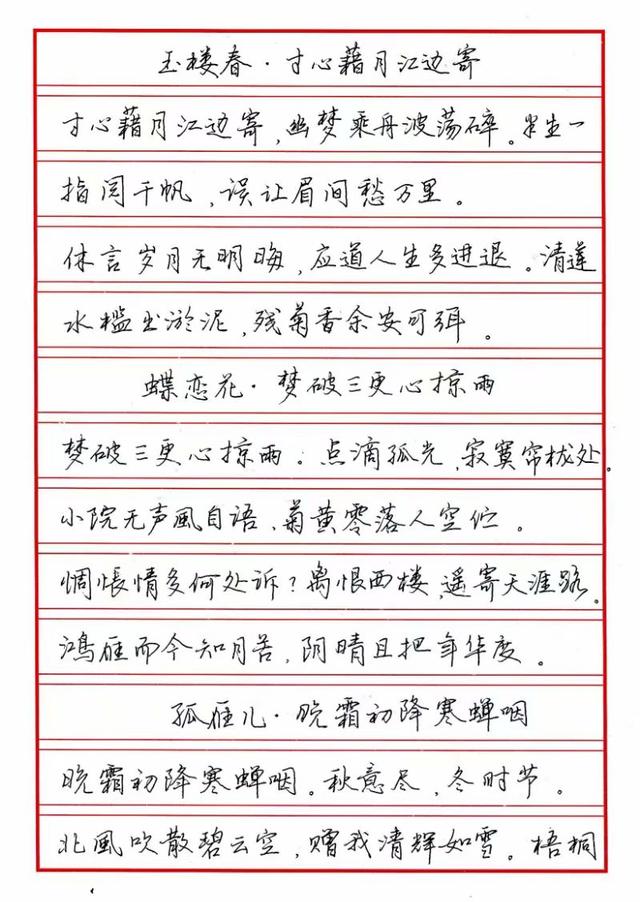 玉楼春·寸心藉月江边寄
寸心藉月江边寄,幽梦乘舟波荡碎。半生一
指阅千帆,误让眉间愁万里。
休言岁月无明晦,应道人生多进退。清莲
水槛出淤泥,残菊香余安可弭。
蝶恋花·梦破三更心掠雨
梦破三更心掠雨。点滴孤光,寂寞帘栊处。
小院无声風自语,菊黄零落人空伫。
惆怅情多何处诉?离恨西楼,遥寄天涯路。
鸿雁而今知月苦,阴晴且把年华度。
孤雁儿·晚霜初降寒蝉咽
晚霜初降寒蝉咽。秋意尽,冬时节。
北風吹散碧云空,赠我清辉如雪。梧桐